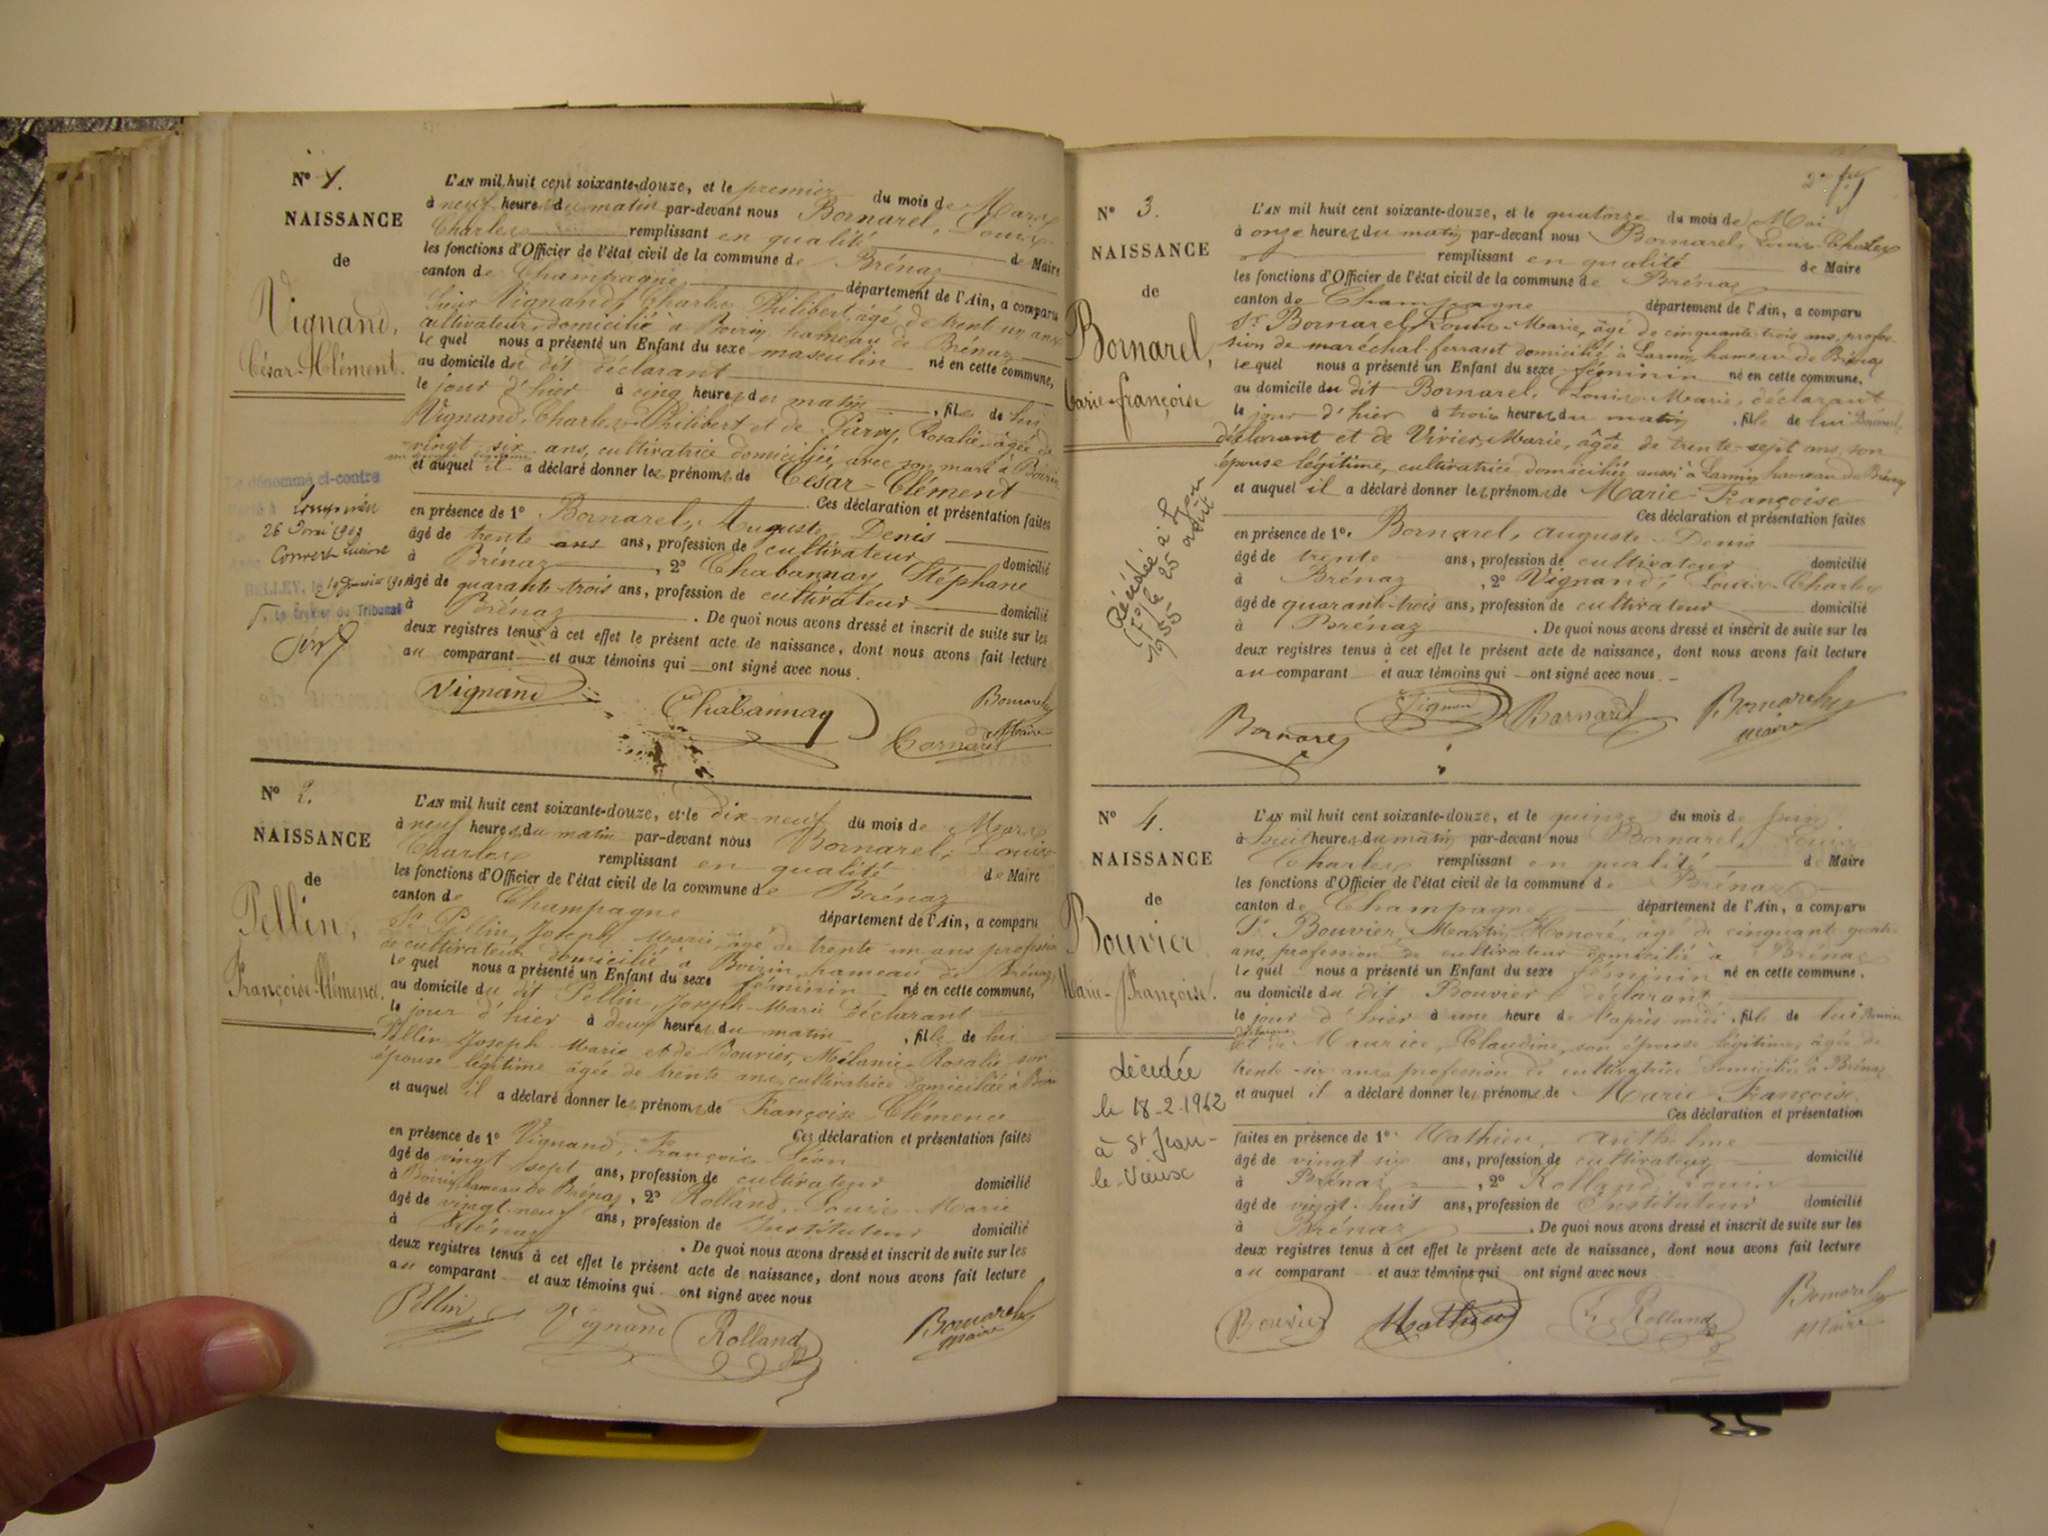 N° 1.
NAISSANCE
de
Vignand,
César-Clément.
Le dénommé ci-contre
26 Mai
Convert
BELLEY, le
Le Greffier du Tribunal
L'AN mil huit cent soixante-douze, et le premier du mois de Mars
à neuf heures du matin par-devant nous Bornarel, Louis
Charles remplissant en qualité de Maire
les fonctions d'Officier de l'état civil de la commune de Brénaz
canton de Champagne département de l'Ain, a comparu
Sieur Vignand, Charles Philibert, âgé de trent un ans
cultivateur, domicilié à hameau de Brénaz
le quel nous a présenté un Enfant du sexe masculin né en cette commune,
au domicile du dit déclarant
le jour d'hier à cinq heures du matin, fils de lui
Vignand, Charles-Philibert et de Rosalie, âgée de
vingt six ans, cultivatrice domiciliée, avec son mari à
et auquel il a déclaré donner les prénoms de César-Clément
Ces déclaration et présentation faites
en présence de 1° Bornarel, Auguste Denis
âgé de trente ans ans, profession de cultivateur domicilié
à Brénaz, 2° Chabannay, Stéphane
âgé de quarante-trois ans, profession de cultivateur domicilié
à Brénaz. De quoi nous avons dressé et inscrit de suite sur les
deux registres tenus à cet effet le présent acte de naissance, dont nous avons fait lecture
au comparant et aux témoins qui ont signé avec nous.
Vignand Chabannay Bornarel
Maire
N° 2.
NAISSANCE
de
Pellin,
Françoise-Clémence.
L'AN mil huit cent soixante-douze, et le dix-neuf du mois de Mars
à neuf heures du matin par-devant nous Bornarel, Louis
Charles remplissant en qualité de Maire
les fonctions d'Officier de l'état civil de la commune de Brénaz
canton de Champagne département de l'Ain, a comparu
Sr Pellin, Joseph Marie, âgé de trente un ans profession
de cultivateur domicilié à Boirin hameau de Brénaz
le quel nous a présenté un Enfant du sexe féminin né en cette commune,
au domicile du dit Pellin, Joseph-Marie déclarant
le jour d'hier à deux heures du matin, fille de lui
Pellin Joseph Marie et de Bouvier, Mélanie-Rosalie son
épouse légitime âgée de trente ans, cultivatrice domiciliée à
et auquel il a déclaré donner les prénoms de Françoise Clémence
Ces déclaration et présentation faites
en présence de 1° Vignand, François Léon
âgé de vingt sept ans, profession de cultivateur domicilié
à Boirin, hameau de Brénaz, 2° Rolland, Louis Marie
âgé de vingt-neuf ans, profession de Instituteur domicilié
à Brénaz. De quoi nous avons dressé et inscrit de suite sur les
deux registres tenus à cet effet le présent acte de naissance, dont nous avons fait lecture
au comparant et aux témoins qui ont signé avec nous
Pellin Vignand Rolland Bornarel
Maire
N° 3.
NAISSANCE
de
Bornarel,
Marie-françoise
Décédée à Lyon
7e le 25 août
1955
L'AN mil huit cent soixante-douze, et le quatorze du mois de Mai
à onze heures du matin par-devant nous Bornarel, Louis Charles
remplissant en qualité de Maire
les fonctions d'Officier de l'état civil de la commune de Brénaz
canton de Champagne département de l'Ain, a comparu
Sr Bornarel, Louis-Marie, âgé de cinquante trois ans, profes-
sion de maréchal-ferrant domicilié à hameau de Brénaz
le quel nous a présenté un Enfant du sexe féminin né en cette commune.
au domicile du dit Bornarel, Louis-Marie, déclarant
le jour d'hier à trois heures du matin, fille de lui Bornarel
déclarant et de Vivier, Marie, âgée de trente sept ans, son
épouse légitime, cultivatrice domiciliée aussi à hameau de Brénaz
et auquel il a déclaré donner les prénoms de Marie-Françoise
Ces déclaration et présentation faites
en présence de 1°. Bornarel, Auguste-Denis
âgé de trente ans, profession de cultivateur domicilié
à Brénaz, 2° Vignand, Louis-Charles
âgé de quarante-trois ans, profession de cultivateur domicilié
à Brénaz. De quoi nous avons dressé et inscrit de suite sur les
deux registres tenus à cet effet le présent acte de naissance, dont nous avons fait lecture
au comparant et aux témoins qui ont signé avec nous.
Bornarel Vignand Bornarel Bornarel
Maire
N° 4.
NAISSANCE
de
Bouvier
Marie-françoise.
décédée
le 18-2-1962
à St Jean-
le-Vieux
L'AN mil huit cent soixante-douze, et le quinze du mois de Juin
à huit heures du matin par-devant nous Bornarel, Louis
Charles remplissant en qualité de Maire
les fonctions d'Officier de l'état civil de la commune de Brénaz
canton de Champagne département de l'Ain, a comparu
Sr Bouvier, Honoré, âgé de cinquante quatre
ans, profession de cultivateur domicilié à Brénaz
le quel nous a présenté un Enfant du sexe féminin né en cette commune.
au domicile du dit Bouvier déclarant
le jour d'hier à une heure de l'après midi, fille de lui Bouvier
et de Maurice, Claudine, son épouse légitime, âgée de
trente-six ans, profession de cultivatrice domiciliée à Brénaz
et auquel il a déclaré donner les prénoms de Marie Françoise.
Ces déclaration et présentation
faites en présence de 1° Mathieu, Anthelme
âgé de vingt six ans, profession de cultivateur domicilié
à Brénaz, 2° Rolland, Louis
âgé de vingt-huit ans, profession de Instituteur domicilié
à Brénaz. De quoi nous avons dressé et inscrit de suite sur les
deux registres tenus à cet effet le présent acte de naissance, dont nous avons fait lecture
au comparant et aux témoins qui ont signé avec nous
Bouvier Mathieu L. Rolland Bornarel
Maire